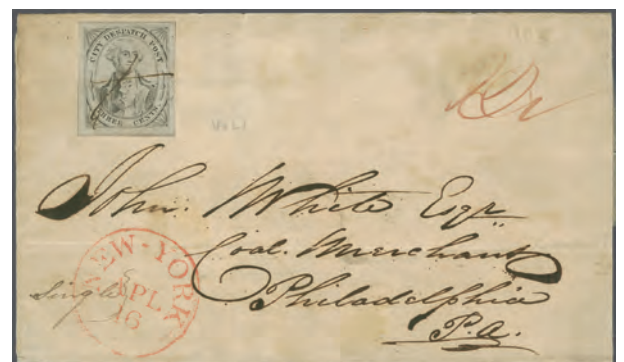 CITY DESPATCH POST
THREE CENTS
VoL1
John White Esqr.
Coal Merchant
Philadelphia
P.a.
Single
NEW-YORK
APL
16